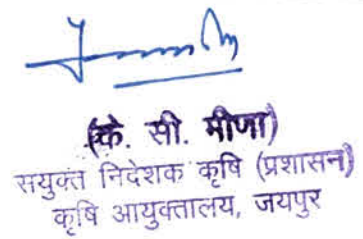 (के. सी. मीणा)
सयुक्त निदेशक कृषि (प्रशासन)
कृषि आयुक्तालय, जयपुर